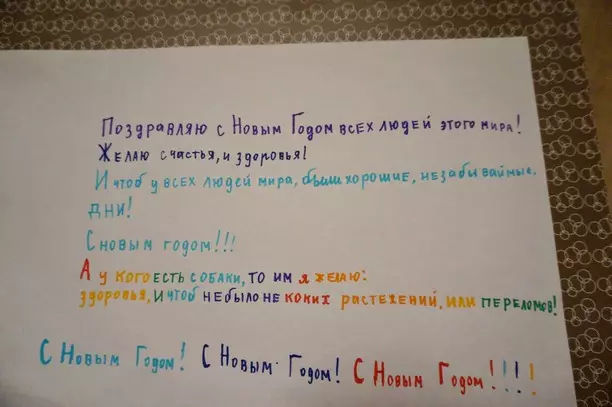 Поздравляю с Новым Годом всех людей этого мира!
Желаю счастья, и здоровья!
И чтоб у всех людей мира, были хорошие, незабываймые,
дни!
С новым годом!!!
А у кого есть собаки, то им я желаю:
здоровья, и чтоб небыло не коких растежений, или переломов!
С Новым Годом! С Новым Годом! С Новым Годом!!!!!